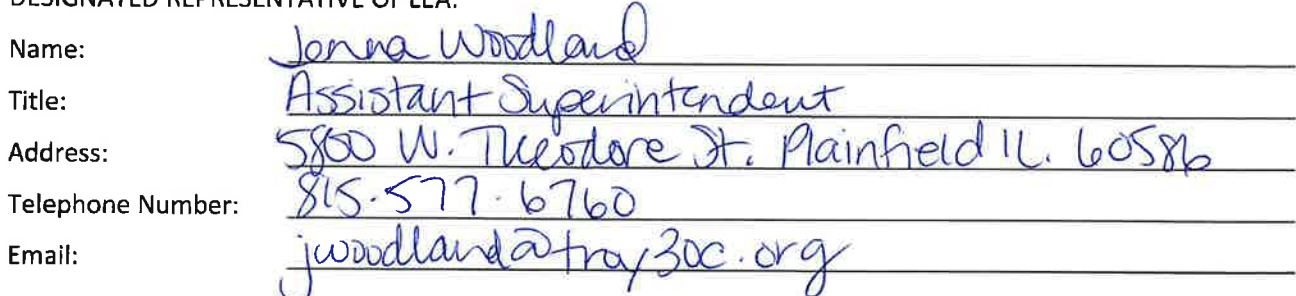 DESIGNATED REPRESENTATIVE OF LEA:
Name: Jenna Woodland
Title: Assistant Superintendent
Address: 5800 W. Theodore St. Plainfield IL. 60586
Telephone Number: 815.577.6760
Email: jwoodland@troy30c.org